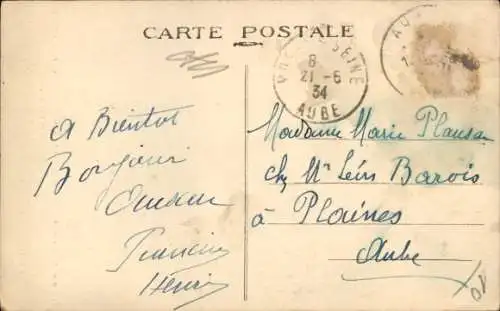 CARTE POSTALE
SEINE
8
21-6
34
AUBE
AU
A Bientot
Bonjour
Francine
Henri
Madame Marie Plausan
chez Mr Léon Barois
à Plaines
Aube